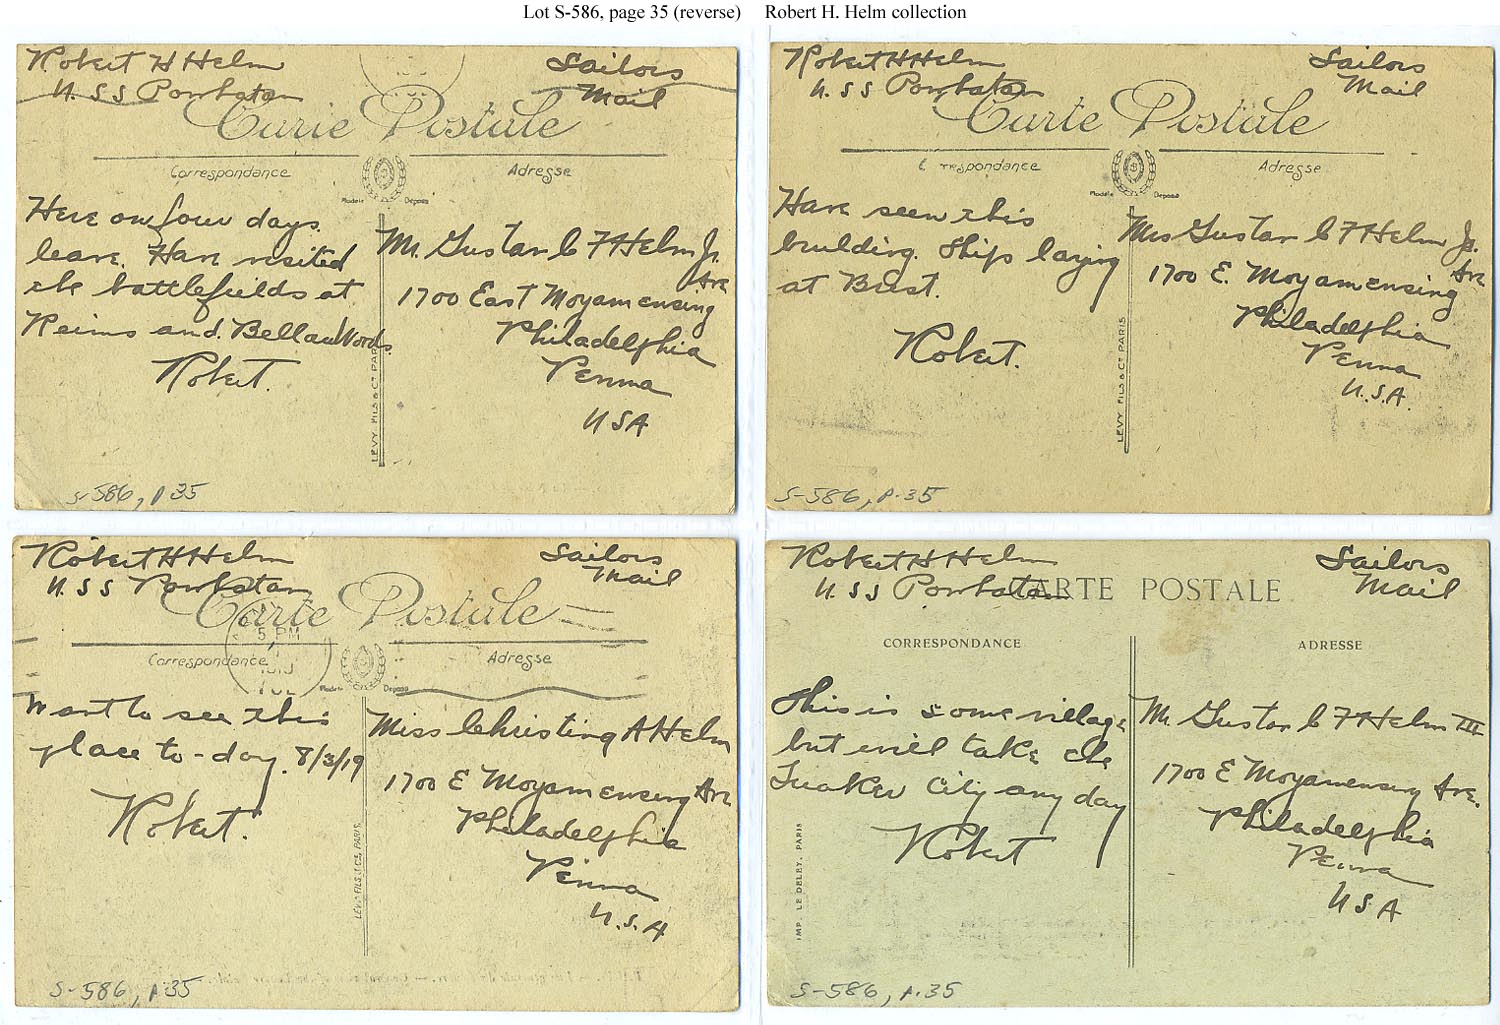 Lot S-586, page 35 (reverse) Robert H. Helm collection
Robert H Helm
U.SS Powhatan
Sailors
Mail
Carte Postale
Correspondance
Adresse
Modèle Déposé
Here on four days
leave. Have visited
the battlefields at
Reims and Bellau Woods.
Robert.
Mr. Gustav C F Helm Jr.
1700 East Moyamensing Ave
Philadelphia
Penna
USA
LÉVY FILS & Cie PARIS
S-586, p 35
Robert H Helm
U.SS Powhatan
Sailors
Mail
Carte Postale
C respondance
Adresse
Modèle Déposé
Have seen this
building. Ship laying
at Brest.
Robert.
Mrs Gustav C F Helm Jr.
1700 E. Moyamensing Ave
Philadelphia
Penna
U.S.A.
LÉVY FILS & Cie PARIS
S-586, p.35
Robert H Helm
U.SS Powhatan
Sailors
Mail
Carte Postale
5 PM
Correspondance
Adresse
Modèle Déposé
Want to see this
place to-day. 8/3/19
Robert.
Miss Christina A Helm
1700 E Moyamensing Ave
Philadelphia
Penna
U.S.A
LÉVY FILS & Cie, PARIS
S-586, p.35
Robert H Helm
U.SS Powhatan
Sailors
Mail
CARTE POSTALE
CORRESPONDANCE
ADRESSE
This is some village
but will take the
Quaker City any day
Robert
Mr. Gustav C F Helm III
1700 E Moyamensing Ave.
Philadelphia
Penna
USA
IMP. LE DELEY, PARIS
S-586, p.35